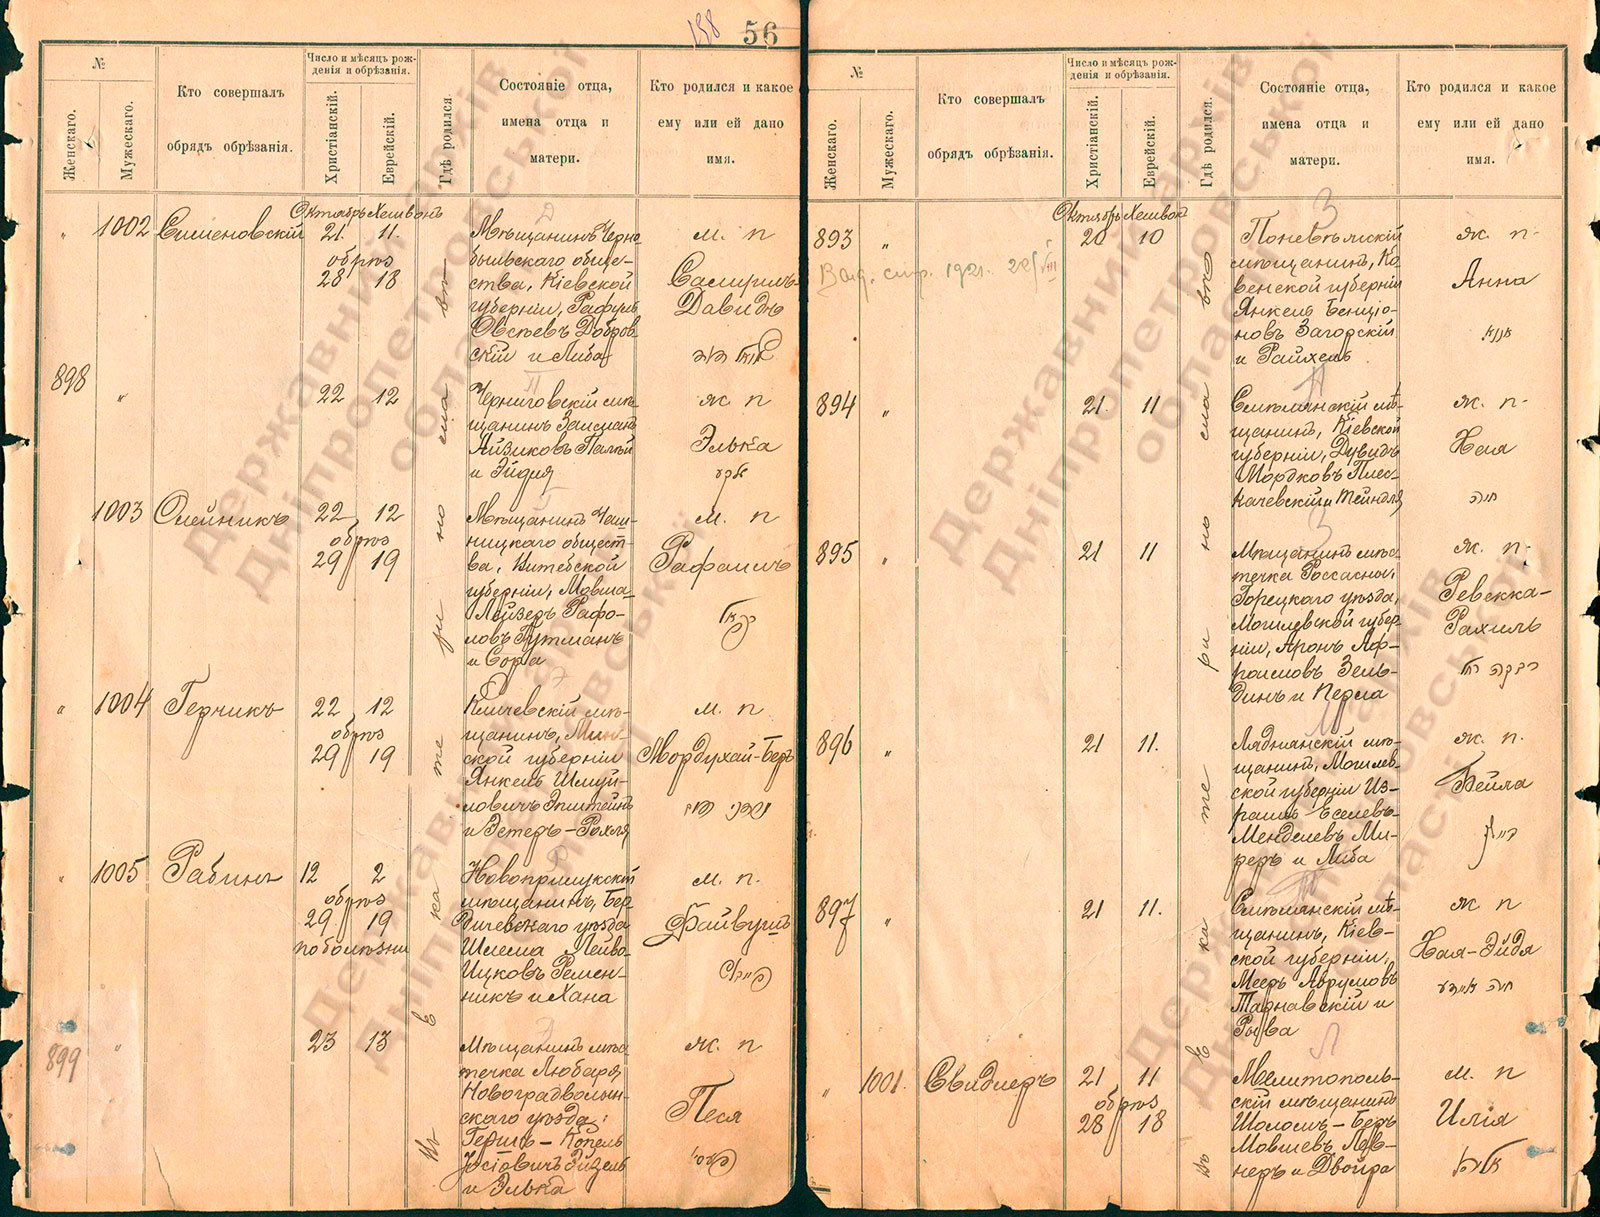 158 56
№
Женскаго.
Мужескаго.
Кто совершалъ
обрядъ обрѣзанія.
Число и мѣсяцъ рож-
денія и обрѣзанія.
Христіанскій.
Еврейскій.
Гдѣ родился
Состояніе отца,
имена отца и
матери.
Кто родился и какое
ему или ей дано
имя.
въ Екатеринославѣ
Октябрь Хешвонъ
" 1002 Симоновскій 21. 11.
обрѣз
28 18
Мѣщанинъ Черно
быльскаго обще-
ства, Кіевской
губерніи, Рафуль
Овсѣевъ Добров
скій и Либа
м. п
Самуилъ
Давидъ
898 " 22 12
Черниговскій мѣ-
щанинъ Залманъ
Айзиковъ Палѣй
и Эйдля
ж п
Элька
1003 Олейникъ 22 12
обрѣз
29 19
Мѣщанинъ Чаш-
ницкаго общест-
ва, Витебской
губерніи, Мовша-
Лейзеръ Рафо-
ловъ Гутманъ
и Сора
м. п
Рафаилъ
" 1004 Герчикъ 22 12
обрѣз
29 19
Кличевскій мѣ-
щанинъ, Мин-
ской губерніи
Янкель Шмуй-
ловичъ Эпштейнъ
и Эстеръ-Рохля
м. п
Мордухай-Беръ
" 1005 Рабинъ 12 2
обрѣз
29 19
по болѣзни
Новоприлукскій
мѣщанинъ, Бер-
дичевскаго уѣзда
Шлема Лейво-
Ицковъ Ремен-
никъ и Хана
м. п.
Файвушъ
899 " 23 13
Мѣщанинъ мѣс-
течка Любаря,
Новоградволын-
скаго уѣзда,
Гершъ-Копель
Эйзель
и Элька
ж. п
Песя
№
Женскаго.
Мужескаго.
Кто совершалъ
обрядъ обрѣзанія.
Число и мѣсяцъ рож-
денія и обрѣзанія.
Христіанскій.
Еврейскій.
Гдѣ родился.
Состояніе отца,
имена отца и
матери.
Кто родился и какое
ему или ей дано
имя.
въ Екатеринославѣ
Октябрь Хешвонъ
893 " 20 10
Поневѣжскій
мѣщанинъ, Ко-
венской губерніи
Янкель Бенціо-
новъ Загорскій
и Райхель
ж. п.
Анна
אננא
894 " 21. 11
Смѣлянскій мѣ-
щанинъ, Кіевской
губерніи, Дувидъ
Мордковъ Плес-
качевскій и Шейндля
ж. п.
Хая
חיה
895 " 21 11
Мѣщанинъ мѣс-
течка Россасны,
Горецкаго уѣзда,
Могилевской губер-
ніи, Аронъ Аф-
роимовъ Зель-
динъ и Перла
ж. п.
Ревекка-
Рахиль
896 " 21 11.
Ляднянскій мѣ-
щанинъ, Могилев-
ской губерніи Из-
раиль-Еселевъ-
Менделевъ Ми-
реръ и Либа
ж. п.
Бейла
897 " 21 11.
Смѣлянскій мѣ-
щанинъ, Кіев-
ской губерніи,
Мееръ Аврумовъ
Тарнавскій и
Рыва
ж п
Хая-Эйдя
" 1001. Свидлеръ 21 11
обрѣз
28 18
Мелитополь-
скій мѣщанинъ
Шоломъ-Беръ
Мовшевъ Лев-
неръ и Двойра
м. п
Илія
Державний архів
Дніпропетровської
області